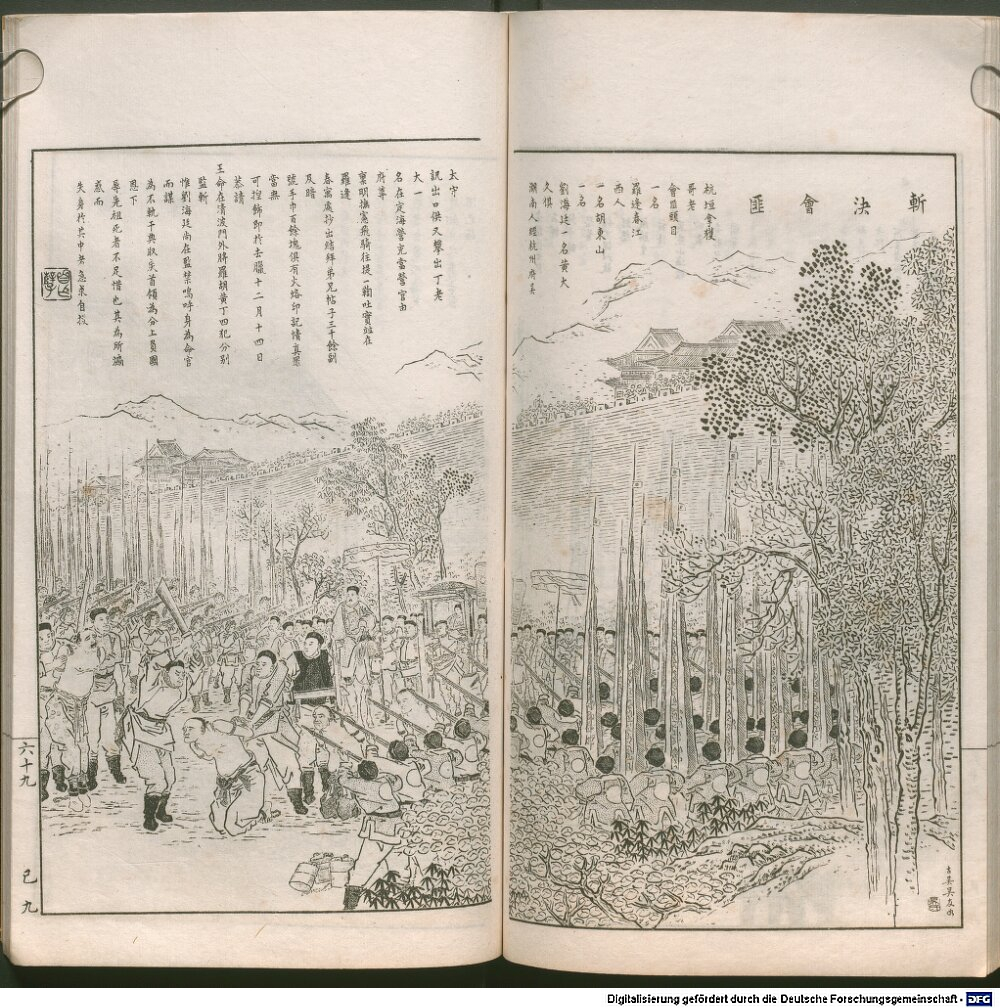 斬決會匪
杭垣拿獲
哥老
會匪頭目
一名
羅逢春江
西人
一名胡東山
一名
劉海廷一名黄大
久俱
湖南人經杭州府吴
太守
訊出口供又攀出丁老
大一
名在定海營充當營官由
府尊
稟明撫憲飛騎往提一鞫吐實並在
羅逢
春寓處抄出結拜弟兄帖子三千餘副
及暗
號手巾百餘塊俱有火烙印記情真罪
當無
可揑飾即於去臘十二月十四日
恭請
王命在清波門外將羅胡黄丁四犯分别
監斬
惟劉海廷尚在監禁嗚呼身為命官
而謀
為不軌干典取戾首領為分上負國
恩下
辱先祖死者不足惜也其為所煽
惑而
失身於其中者急宜自拔
六十九
已九
古吳吳友如
Digitalisierung gefördert durch die Deutsche Forschungsgemeinschaft - DFG